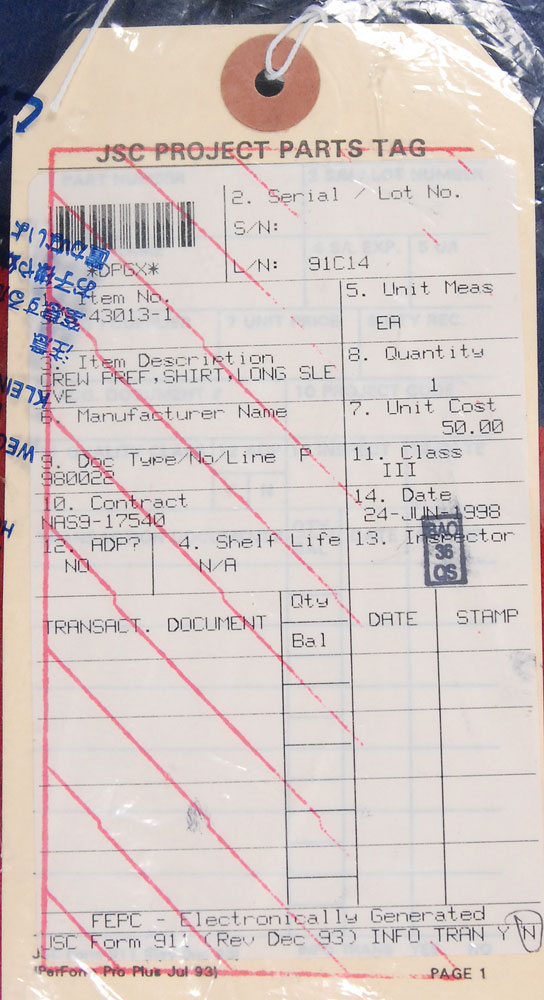 JSC PROJECT PARTS TAG
2. Serial / Lot No.
S/N:
*DPGX*
L/N: 91C14
Item No.
43013-1
5. Unit Meas
EA
Item Description
CREW PREF,SHIRT,LONG SLE
EVE
8. Quantity
1
6. Manufacturer Name
7. Unit Cost
50.00
9. Doc Type/No/Line P
980022
11. Class
III
10. Contract
NAS9-17540
14. Date
24-JUN-1998
12. ADP?
NO
4. Shelf Life
N/A
13. Inspector
36
QS
TRANSACT. DOCUMENT
Qty
Bal
DATE
STAMP
FEPC - Electronically Generated
JSC Form 911 (Rev Dec 93) INFO TRAN Y N
Pro Plus Jul 93)
PAGE 1